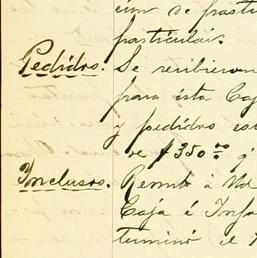 cun de partic
particulai.
Pedidos. Se recibieron
para ista Caj
y pedidos es
de $350.00 q
Inclusos. Remito à Ud
Caja é Info
terminó el